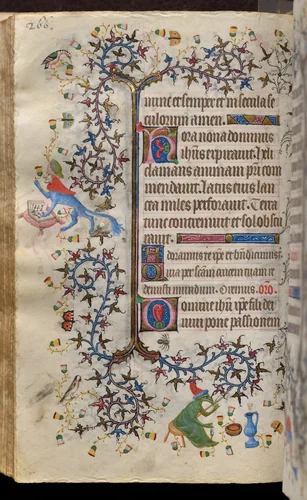 266
nunc et semper et in secula se
culorum amen.
Hora nona dominus
ihus expiravit. Eli
clamans animam pri com
mendavit. Latus eius lan
cea miles perforavit. Terra
tunc contremuit et sol obscu
ravit.
Adoramus te xpe et bndicimus
Quia per scam crucem tuam re
demisti mundum. Oremus. Oro
Domine ihu xpe fili dei
vivi pone passionem